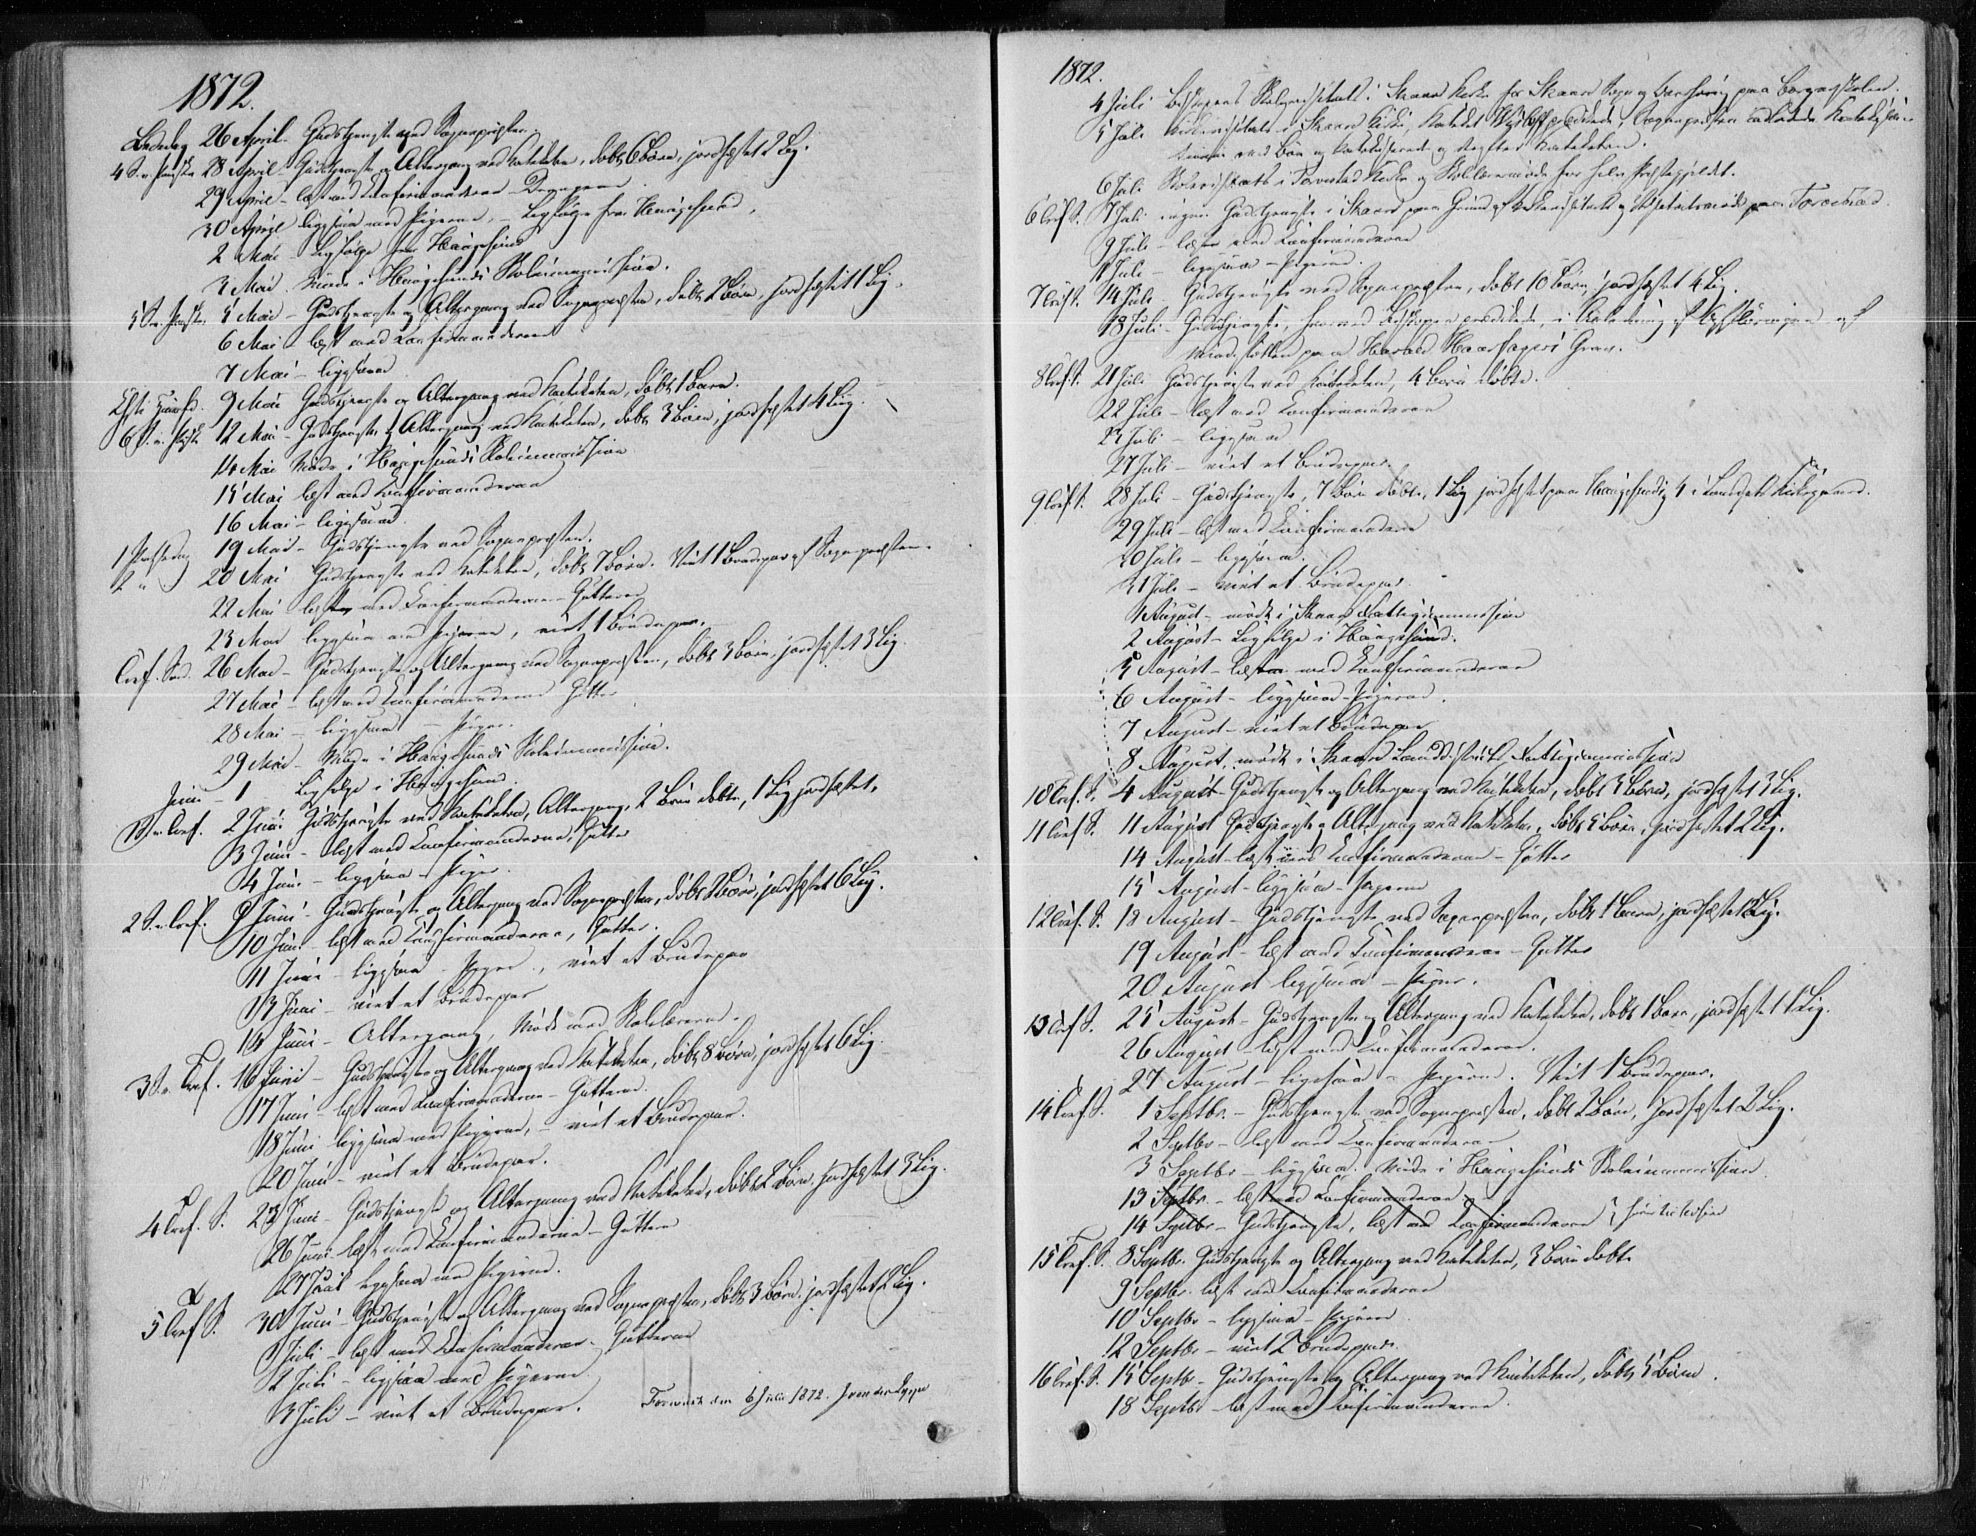 1872.
Bededag 26 April. Gudstjeneste ved Sognepresten.
4 S. e. Paaske 28 April - Gudstjeneste og Altergang ved Kateketen, døbt 6 Børn, jordfæstet 2 Lig.
29 April - læst med Konfirmanderne
30 April ligesaa med Pigerne, - Ligfølge fra Haugesund.
2 Mai - Ligfølge fra Haugesund
3 Mai. Møde i Haugesunds Skolecommission.
5 S. e. Paaske. 5 Mai - Gudstjeneste og Altergang ved Sognepresten, døbt 2 Børn, jordfæstet 1 Lig.
6 Mai - læst med Konfirmanderne
7 Mai - ligesaa
Christi Himmelf. 9 Mai Gudstjeneste og Altergang ved Kateketen, døbt 1 Barn.
6 S. e. Paaske 12 Mai - Gudstjeneste og Altergang ved Kateketen, døbt 3 Børn, jordfæstet 4 Lig.
14 Mai Møde i Haugesunds Skolecommission
15 Mai læst med Konfirmanderne
16 Mai - ligesaa
1 Pinsedag 19 Mai - Gudstjeneste ved Sognepresten.
2 " 20 Mai Gudstjeneste ved Kateketen, døbt 7 Børn. Viet 1 Brudepar af Sognepresten.
22 Mai læst med Konfirmanderne - Gutterne
23 Mai ligesaa med Pigerne, viet 1 Brudepar.
Tref. Snd. 26 Mai - Gudstjeneste og Altergang ved Sognepresten, døbt 3 Børn, jordfæstet 3 Lig.
27 Mai - læst med Konfirmanderne Gutter
28 Mai - ligesaa - Piger.
29 Mai - Møde i Haugesunds Skolecommission.
Juni - 1 Ligfølge i Haugesund.
1 S. e. Tref. 2 Juni Gudstjeneste ved Kateketen, Altergang, 2 Børn døbte, 1 Lig jordfæstet.
3 Juni - læst med Konfirmanderne, Gutter
4 Juni - ligesaa - Piger.
2 S. e. Tref. 9 Juni - Gudstjeneste og Altergang ved Sognepresten, døbt 2 Børn, jordfæstet 6 Lig.
10 Juni - læst med Konfirmanderne, Gutter.
11 Juni - ligesaa - Piger, viet et Brudepar
13 Juni - viet et Brudepar
14 Juni - Altergang, Møde med Skolelærerne.
3 S. e. Tref. 16 Juni - Gudstjeneste og Altergang ved Kateketen, døbt 8 Børn, jordfæstet 6 Lig.
17 Juni - læst med Konfirmanderne - Gutterne.
18 Juni ligesaa med Pigerne, - viet et Brudepar.
20 Juni - viet et Brudepar.
4 Tref. S. 23 Juni - Gudstjeneste og Altergang ved Kateketen, døbt 2 Børn, jordfæstet 3 Lig.
26 Juni - læst med Konfirmanderne - Gutterne
27 Juni ligesaa med Pigerne.
5 Tref S. 30 Juni - Gudstjeneste og Altergang ved Sognepresten, døbt 3 Børn, jordfæstet 2 Lig.
1 Juli - læst med Konfirmanderne. Gutterne
2 Juli - ligesaa med Pigerne
3 Juli - viet et Brudepar.
den 6 Juli 1872. J von der Lippe
1872.
4 Juli Bispens Skolevisitats i Skaare Kirke for Skaare Sogn og paa Borgerskolen.
5 Juli Kirkevisitats i Skaare Kirke, Kateket prædikede, Sognepresten
med Bøn og Kateketen.
6 Juli Skolevisitats i Torvestad Kirke og Skolelærermøde for hele Prestegjeldet.
6 Tref S. 7 Juli ingen Gudstjeneste i Skaare paa Grund af Kirkevisitats paa Torvestad.
9 Juli - læst med Konfirmanderne
11 Juli - ligesaa - Pigerne.
7 Tref S. 14 Juli Gudstjeneste ved Sognepresten, døbt 10 Børn, jordfæstet 4 Lig.
18 Juli - Gudstjeneste, hvorved Bispen prædikede, i Anledning af Afsløringen af
Mindestøtten paa Harald Haarfagers Grav.
8 Tref S. 21 Juli Gudstjeneste ved Kateketen, 4 Børn døbte.
22 Juli - læst med Konfirmanderne
23 Juli - ligesaa
27 Juli - viet et Brudepar.
9 Tref S. 28 Juli - Gudstjeneste, 7 Børn døbte, 1 Lig jordfæstet paa Haugesunds, 4 i Landets Kirkegaard.
29 Juli - læst med Konfirmanderne
30 Juli - ligesaa.
31 Juli - viet et Brudepar.
1 August - mødt i Skaare Fattigcommission
2 August - Ligfølge i Haugesund.
5 August - læst med Konfirmanderne
6 August - ligesaa - Pigerne.
7 August - viet et Brudepar
8 August mødt i Skaare Landdistrikts Fattigcommission
10 Tref. S. 4 August - Gudstjeneste og Altergang ved Kateketen, døbt 3 Børn, jordfæstet 3 Lig.
11 Tref S. 11 August Gudstjeneste og Altergang ved Kateketen, døbt 5 Børn, jordfæstet 2 Lig.
14 August - læst med Konfirmanderne - Gutter
15 August - ligesaa - Pigerne
12 Tref. S. 18 August - Gudstjeneste ved Sognepresten, døbt 1 Barn, jordfæstet 2 Lig.
19 August - læst med Konfirmanderne - Gutter
20 August ligesaa - Piger.
13 Tref S. 25 August - Gudstjeneste og Altergang ved Kateketen, døbt 1 Barn, jordfæstet 1 Lig.
26 August - læst med Konfirmanderne.
27 August - ligesaa - Pigerne. Viet 1 Brudepar.
14 Tref S. 1 Septbr. - Gudstjeneste ved Sognepresten, døbt 2 Børn, jordfæstet 2 Lig.
2 Septbr - læst med Konfirmanderne
3 Septbr - ligesaa. Møde i Haugesunds Skolecommission
13 Septbr. - læst med Konfirmanderne
14 Septbr - Gudstjeneste, læst med Konfirmanderne
15 Tref. S. 8 Septbr. Gudstjeneste og Altergang ved Kateketen, 3 Børn døbte
9 Septbr. læst med Konfirmanderne
10 Septbr - ligesaa - Pigerne
12 Septbr - viet 2 Brudepar.
16 Tref. S. 15 Septbr - Gudstjeneste og Altergang ved Kateketen, døbt 5 Børn.
18 Septbr - læst med Konfirmanderne.